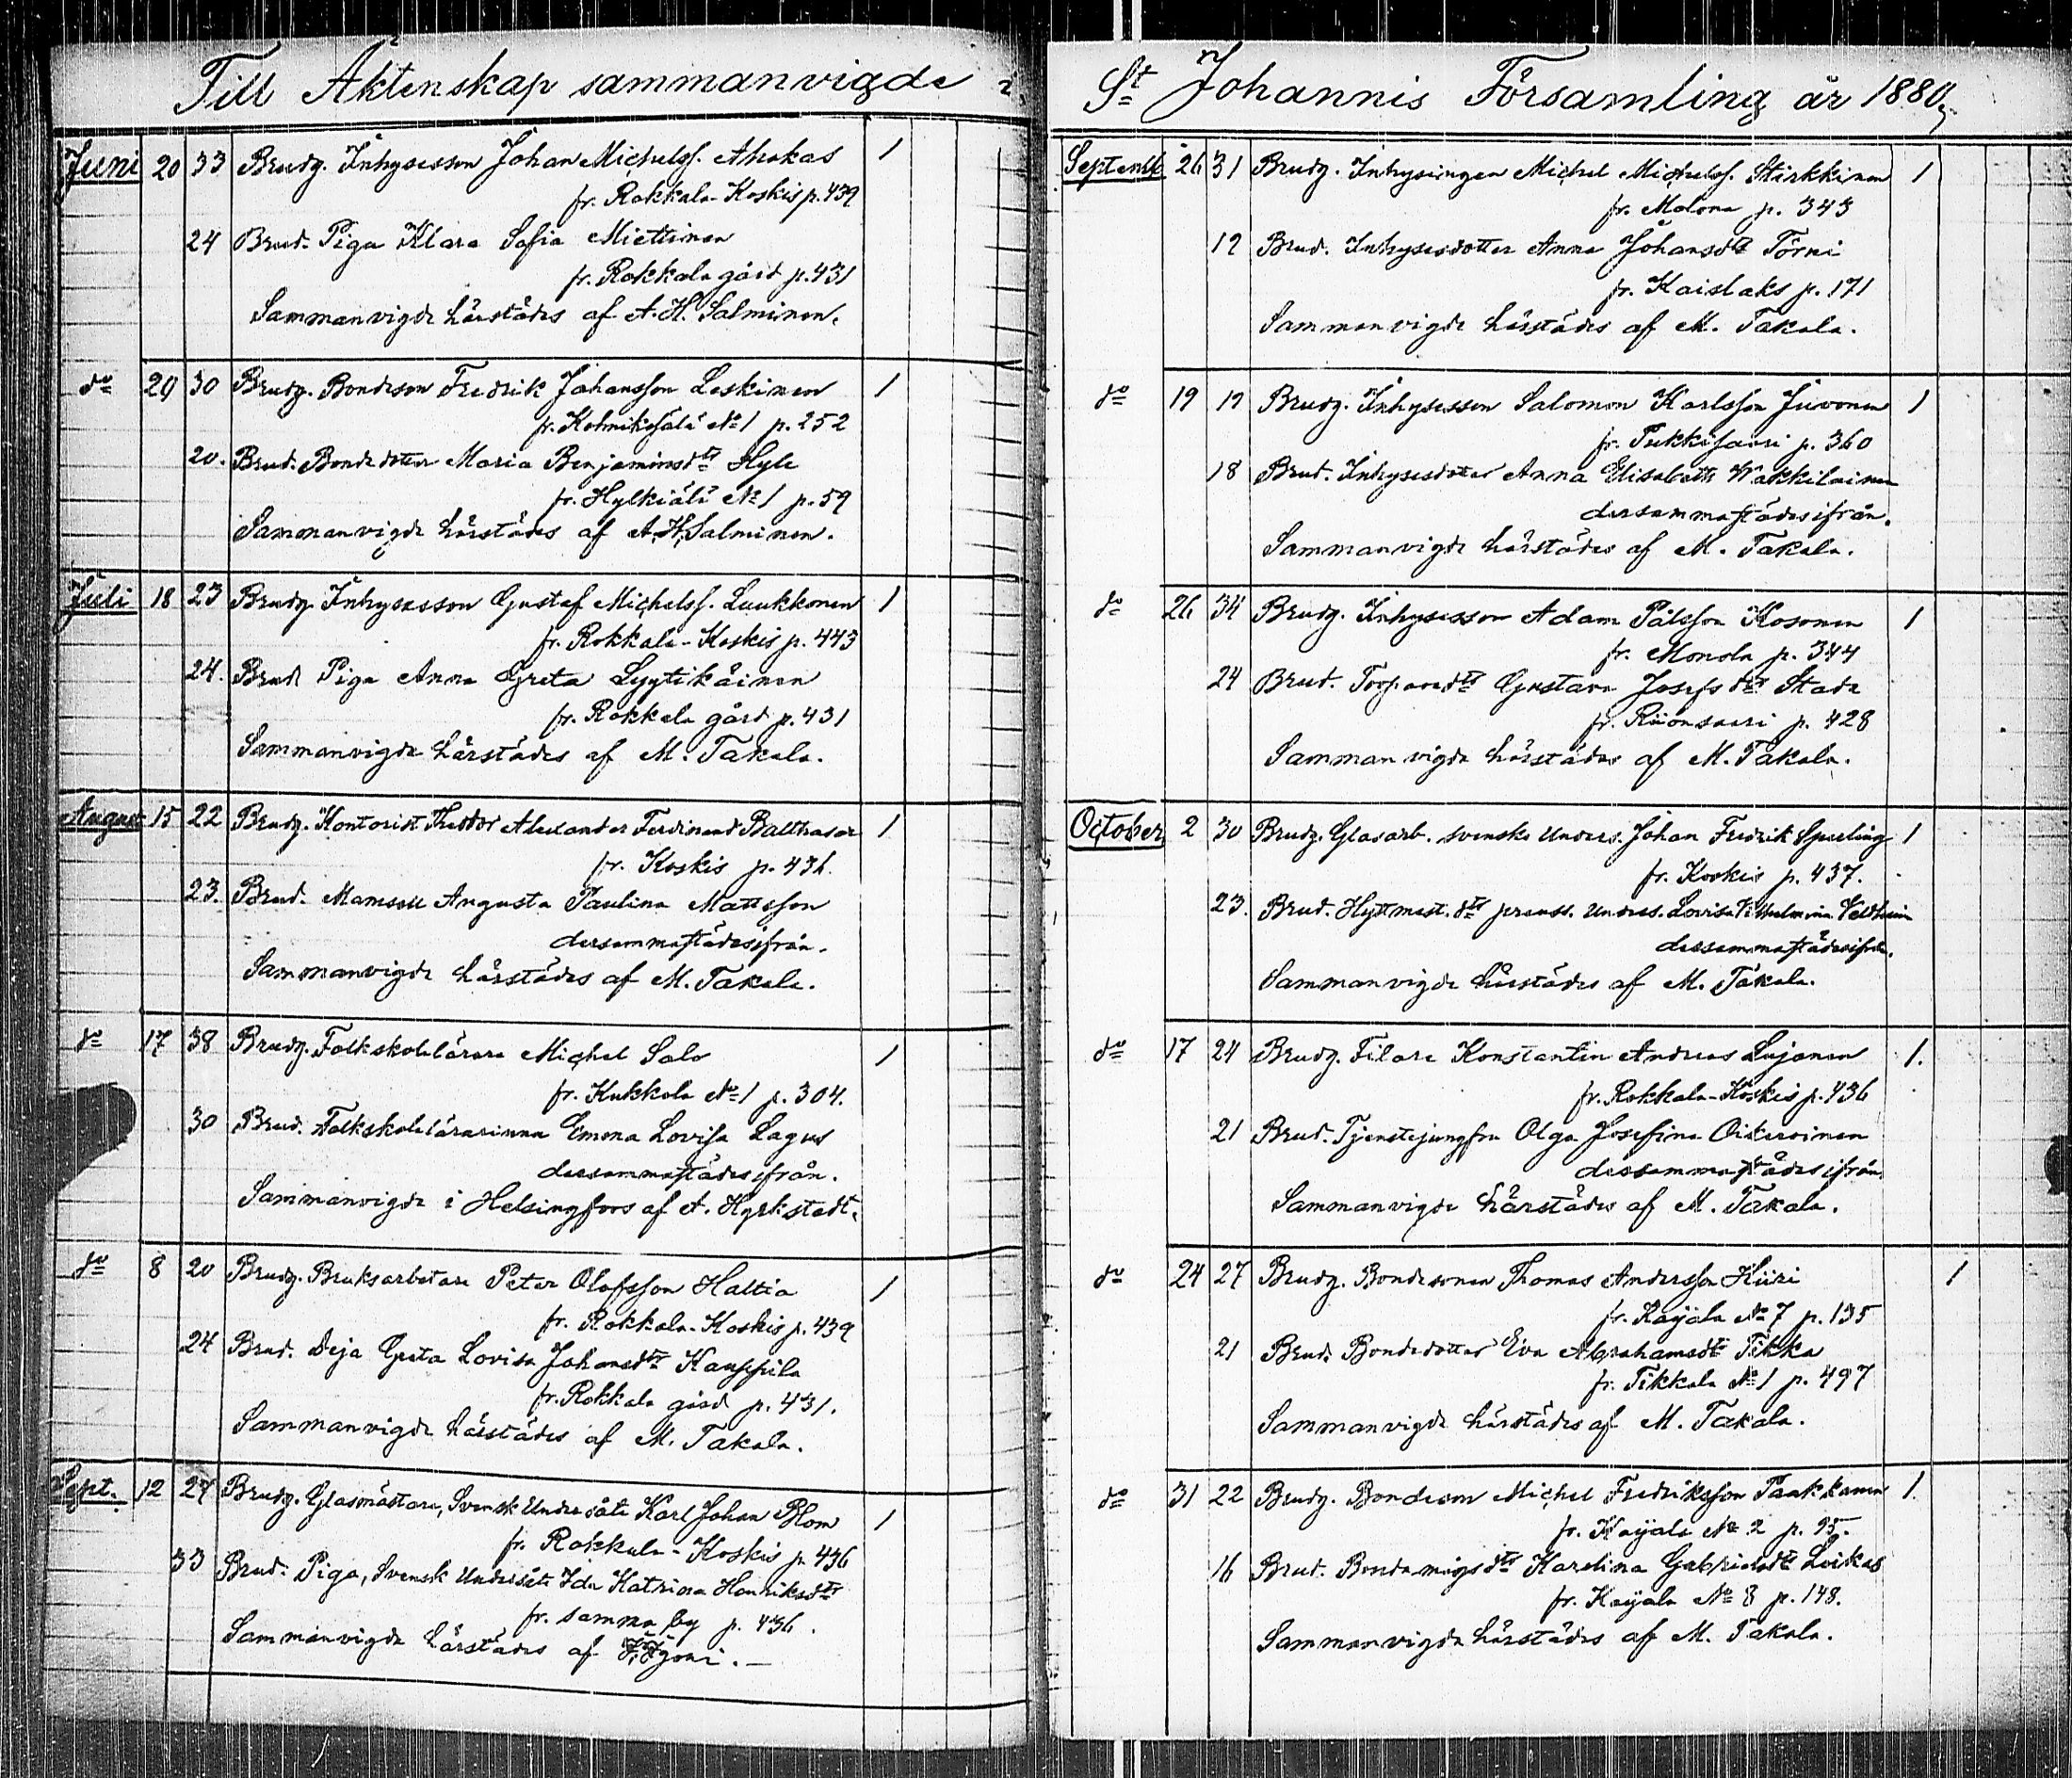 Till Äktenskap sammanvigde i
Juni 20 33 Brudg. Inhysesson Johan Michelss. Ahokas 1
fr. Rokkala-Koskis p. 439
24 Brud. Piga Klara Sofia Miettinen
fr. Rokkala gård p. 431
Sammanvigde härstädes af A. H. Salminen.
do 20 30 Brudg. Bondeson Fredrik Johansson Leskinen 1
fr. No 1 p. 252
20. Brud. Bondedotter Maria Benjaminsdtr Hyle
fr. Hylkiälä No 1 p. 59
Sammanvigde härstädes af A. H. Salminen.
Juli 18 23 Brudg. Inhysesson Gustaf Michelss. Luukkonen 1
fr. Rokkala-Koskis p. 443
24. Brud Piga Anna Greta Lyytikäinen
fr. Rokkala gård p. 431
Sammanvigde härstädes af M. Takala.
August 15 22 Brudg. Kontorist Theodor Alexander Ferdinand Balthasar 1
fr. Koskis p.
23. Brud. Mamsell Augusta Paulina Mattsson
dersammastädesifrån.
Sammanvigde härstädes af M. Takala.
do 17 38 Brudg. Folkskolelärare Michel Salo 1
fr. Kukkola No 1 p. 304.
30 Brud. Folkskolelärarinna Emma Lovisa Lagus
dersammastädesifrån.
Sammanvigde i Helsingfors af A. Hyrkstedt.
do 8 20 Brudg. Bruksarbetare Peter Olofsson Haltia 1
fr. Rokkala-Koskis p. 439
24 Brud. Deja Greta Lovisa Johansdtr Kauppila
fr. Rokkala gård p. 431.
Sammanvigde härstädes af M. Takala.
Sept. 12 27 Brudg. Glasmästare, Svensk Undersåte Karl Johan Blom 1
fr. Rokkala-Koskis p. 436
33 Brud. Piga, Svensk Undersåte Ida Katrina Henriksdtr
fr. samma by p. 436.
Sammanvigde härstädes af
St Johannis Församling år 1880.
Septemb. 26 31 Brudg. Inhysingen Michel Michelss. Stärkkinen 1
fr. Molona p. 343
19 Brud. Inhysesdotter Anna Johansdtr Törni
fr. Kaislaks p. 171
Sammanvigde härstädes af M. Takala.
do 19 19 Brudg. Inhysesson Salomon Karlsson Juvonen 1
fr. Pukkisaari p. 360
18 Brud. Inhysesdotter Anna Elisabeth Wakkilainen
dersammastädesifrån.
Sammanvigde härstädes af M. Takala.
do 26 34 Brudg. Inhysesson Adam Pålsson Kosonen 1
fr. Monola p. 344
24 Brud. Torparedtr Gustava Josefsdtr Stade
fr. Riionsaari p. 428
Sammanvigde härstädes af M. Takala.
October 2 30 Brudg. Glasarb. svenske Unders. Johan Fredrik Sperling 1
fr. Koskis p. 437.
23. Brud. Hyttmest. dtr preuss. Unders. Lovisa Vilhelmina Veldheim
dersammastädesifrån.
Sammanvigde härstädes af M. Takala.
do 17 24 Brudg. Filare Konstantin Andreas Lujanen 1.
fr. Rokkala-Koskis p. 436
21 Brud. Tjenstejungfru Olga Josefina Oikarainen
dersammastädesifrån.
Sammanvigde härstädes af M. Takala.
do 24 27 Brudg. Bondesonen Thomas Andersson Hiiri 1
fr. Kayala No 7 p. 135
21 Brud. Bondedotter Eva Abrahamsdtr Tikka
fr. Tikkala No 1 p. 497
Sammanvigde härstädes af M. Takala.
do 31 22 Brudg. Bondeson Michel Fredriksson Paakkanen 1.
fr. Kayala No 2 p. 95.
16 Brud. Bondemågs dtr Karolina Gabrielsdtr Loikas
fr. Kayala No 8 p. 148.
Sammanvigde härstädes af M. Takala.